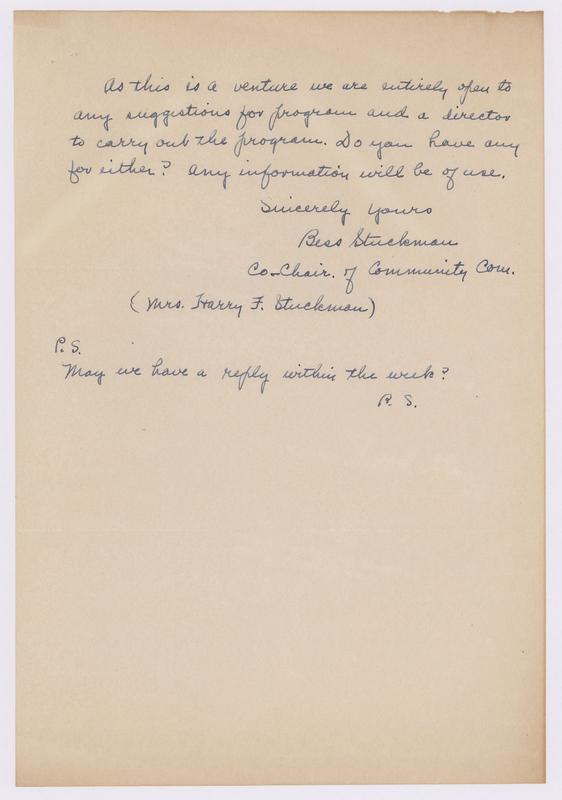 As this is a venture we are entirely open to
any suggestions for program and a director
to carry out the program. Do you have any
for either? Any information will be of use.
Sincerely Yours
Bess Stuckman
Co-Chair. of Community Com.
(Mrs. Harry F. Stuckman)
P.S.
May we have a reply within the week?
P. S.